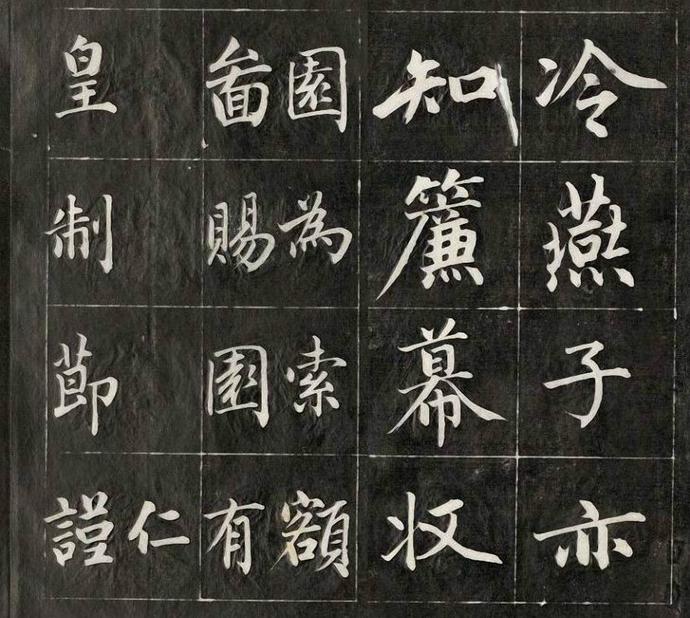 冷燕子亦
知簾幕收
園為索額
啚賜園有
仁
皇制莭謹